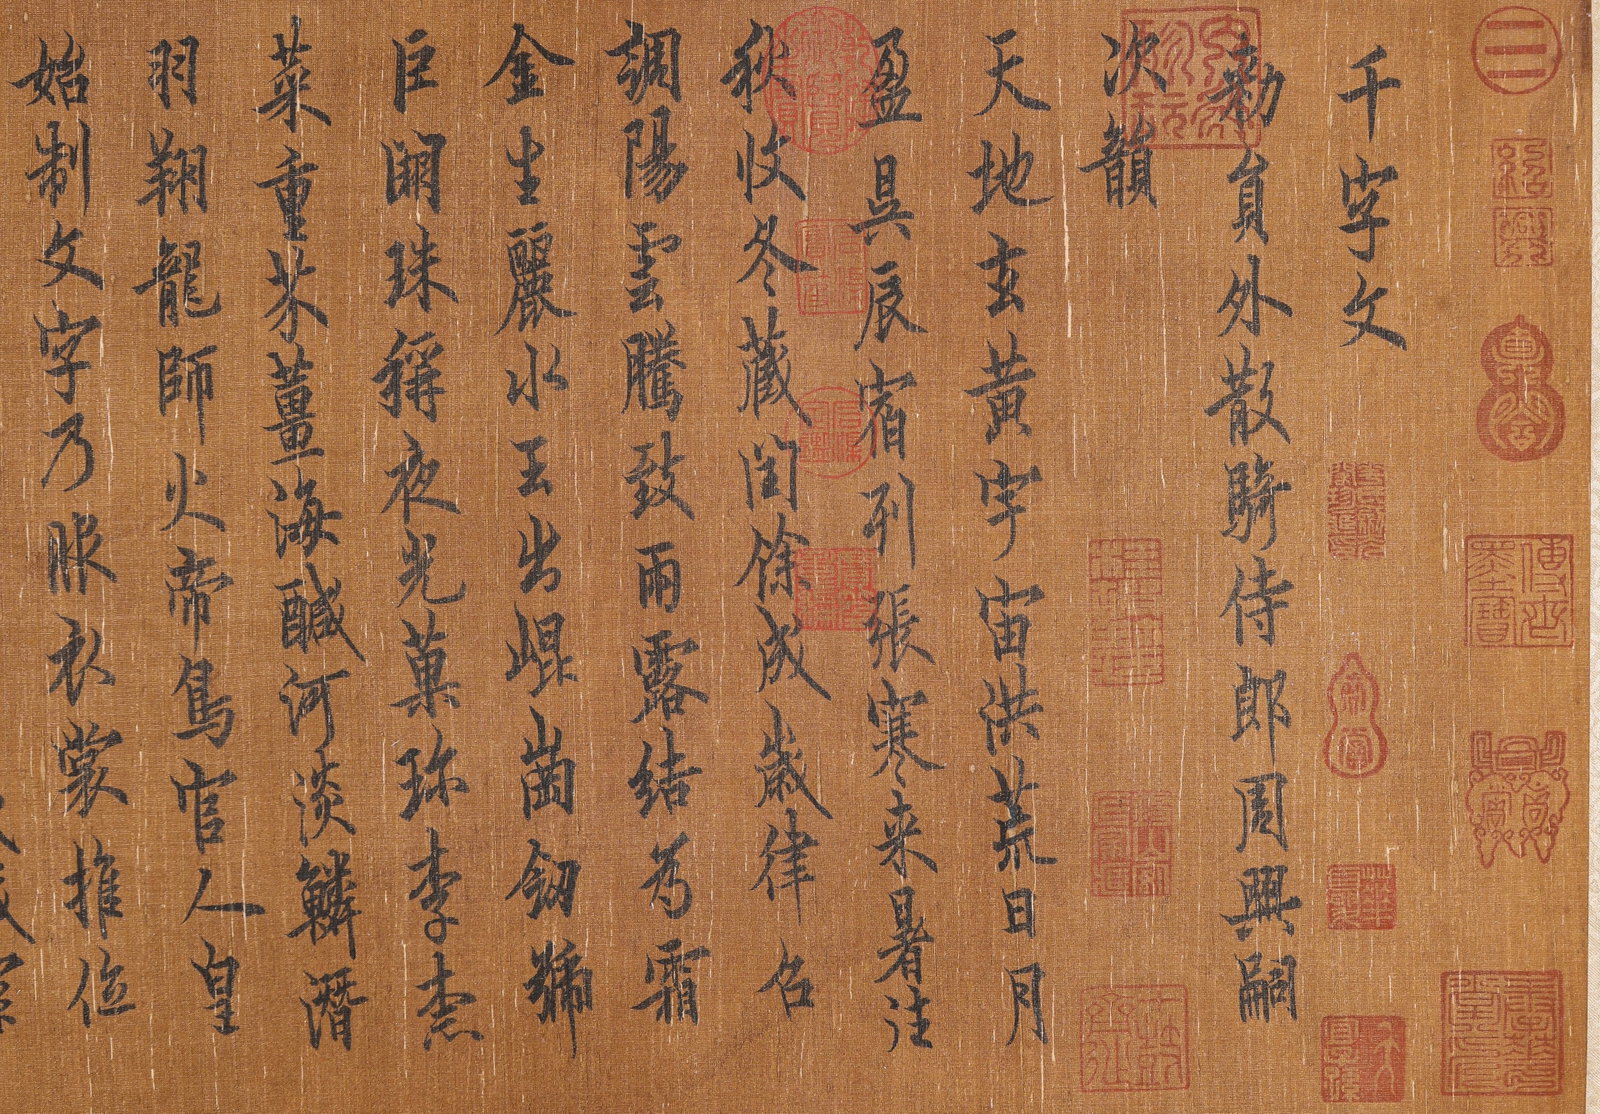 千字文
勑員外散騎侍郎周興嗣
次韻
天地玄黃宇宙洪荒日月
盈昃辰宿列張寒来暑往
秋收冬藏閏餘成歲律召
調陽雲騰致雨露結為霜
金生麗水玉出崐崗劒號
巨闕珠稱夜光菓珎李柰
菜重芥薑海醎河淡鱗潛
羽翔龍師火帝鳥官人皇
始制文字乃服衣裳推位
紹興